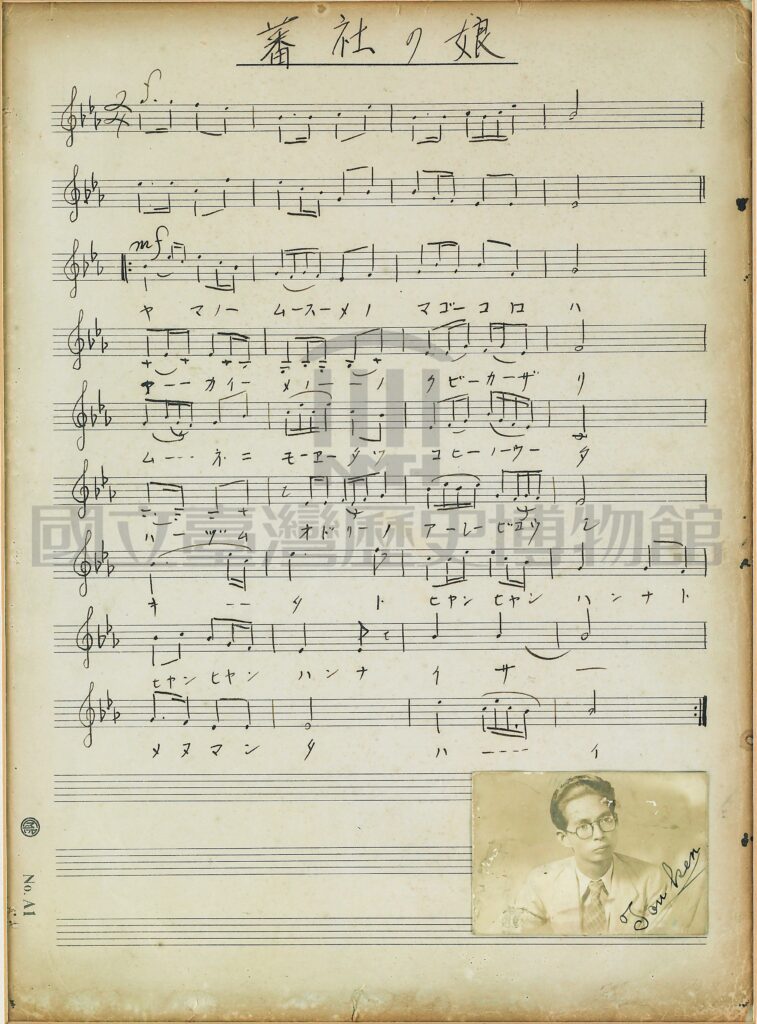 蕃社ノ娘
f
mf
ヤ マノー ムースーメノ マゴーコロ ハ
ヤーーカイー メノーーノ クビーカーザ リ
ムーーネニ モーヱータツ コヒーノーウー タ
ハーヅム オドリーノ アーレービヨウ シ
オーー タ ト ヒヤン ヒヤン ハンナト
ヒヤン ヒヤン ハンナ イ サ ー
メヌマン タ ハーーーー イ
國立臺灣歷史博物館
Tou ken
No. A1